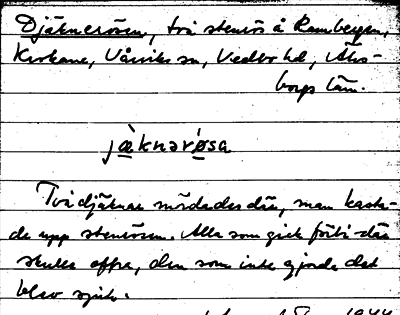 Djäknerösen, två stenrös å Ramberget,
Krokane, Vårviks sn, Vedbo hd, Älvs-
borgs län.
jæ̀knərø̀sa
Två djäknar mördades där, man kasta-
de upp stenrösen. Alla som gick förbi där
skulle offra, den som inte gjorde det
blev sjuk.
1944